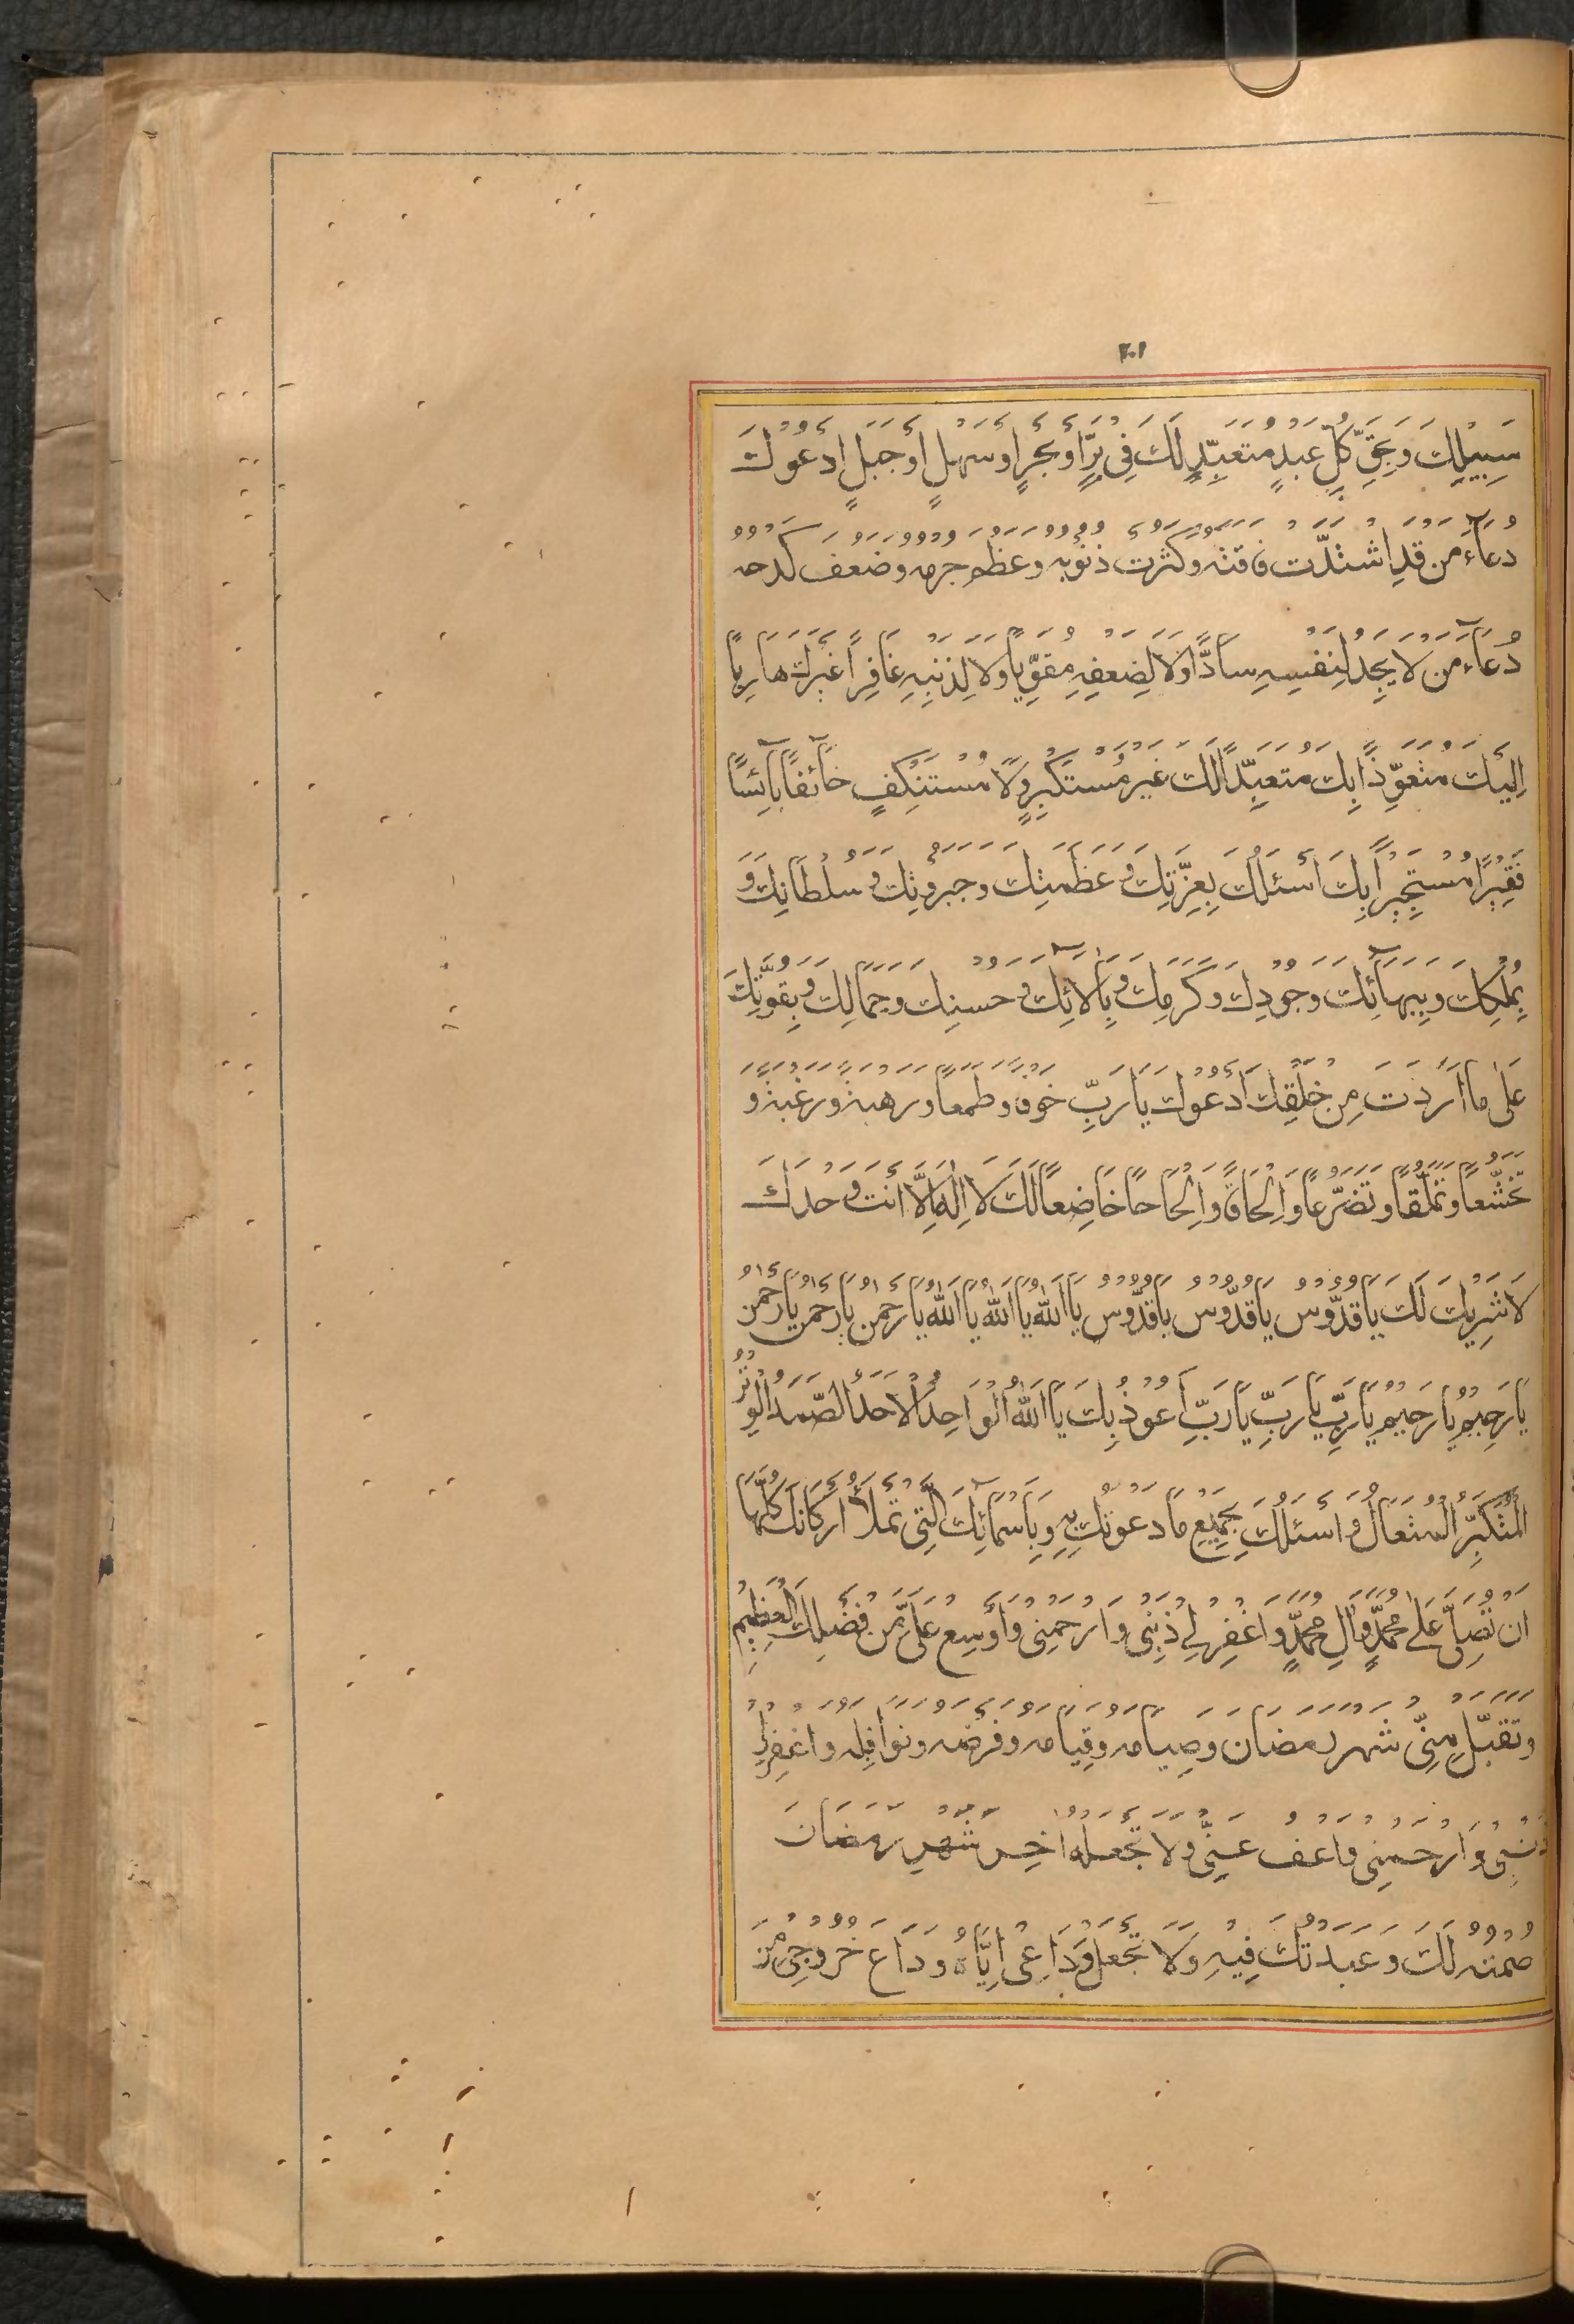 ٢٠١
سَبِيْلِكَ وَبِحَقِّ كُلِّ عَبْدٍ مُتَعَبِّدٍ لَكَ فِىْ بَرٍّ اَوْ بَحْرٍ اَوْ سَهْلٍ اَوْ جَبَلٍ اَدْعُوْكَ
دُعَآءَ مَنْ قَدِ اشْتَدَّتْ فَاقَتُهُ وَكَثُرَتْ ذُنُوْبُهُ وَعَظُمَ جُرْمُهُ وَضَعُفَ كَدْحُهُ
دُعَآءَ مَنْ لَا يَجِدُ لِنَفْسِهِ سَادًّا وَلَا لِضَعْفِهِ مُقَوِّيًا وَلَا لِذَنْبِهِ غَافِرًا غَيْرَكَ هَارِبًا
اِلَيْكَ مُتَعَوِّذًا بِكَ مُتَعَبِّدًا لَكَ غَيْرَ مُسْتَكْبِرٍ وَلَا مُسْتَنْكِفٍ خَآئِفًا بَآئِسًا
فَقِيْرًا مُسْتَجِيْرًا بِكَ اَسْئَلُكَ بِعِزَّتِكَ وَ عَظَمَتِكَ وَجَبَرُوْتِكَ وَ سُلْطَانِكَ وَ
بِمُلْكِكَ وَبِبَهَآئِكَ وَجُوْدِكَ وَكَرَمِكَ وَبِاٰلَآئِكَ وَ حُسْنِكَ وَجَمَالِكَ وَبِقُوَّتِكَ
عَلٰى مَا اَرَدْتَ مِنْ خَلْقِكَ اَدْعُوْكَ يَا رَبِّ خَوْفًا وَطَمَعًا وَرَهْبَةً وَرَغْبَةً وَ
تَخَشُّعًا وَتَمَلُّقًا وَتَضَرُّعًا وَاِلْحَافًا وَاِلْحَاحًا خَاضِعًا لَكَ لَا اِلٰهَ اِلَّا اَنْتَ وَحْدَكَ
لَا شَرِيْكَ لَكَ يَا قُدُّوْسُ يَا قُدُّوْسُ يَا قُدُّوْسُ يَا اَللّٰهُ يَا اَللّٰهُ يَا اَللّٰهُ يَا رَحْمٰنُ يَا رَحْمٰنُ يَا رَحْمٰنُ
يَا رَحِيْمُ يَا رَحِيْمُ يَا رَبِّ يَا رَبِّ يَا رَبِّ اَعُوْذُ بِكَ يَا اَللّٰهُ الْوَاحِدُ الْاَحَدُ الصَّمَدُ الْوِتْرُ
الْمُتَكَبِّرُ الْمُتَعَالُ وَ اَسْئَلُكَ بِجَمِيْعِ مَا دَعَوْتُكَ بِهِ وَبِاَسْمَآئِكَ الَّتِىْ تَمْلَأُ اَرْكَانَكَ كُلَّهَا
اَنْ تُصَلِّىَ عَلٰى مُحَمَّدٍ وَاٰلِ مُحَمَّدٍ وَاغْفِرْ لِىْ ذَنْبِىْ وَارْحَمْنِىْ وَاَوْسِعْ عَلَىَّ مِنْ فَضْلِكَ الْعَظِيْمِ
وَتَقَبَّلْ مِنِّىْ شَهْرَ رَمَضَانَ وَصِيَامَهُ وَقِيَامَهُ وَفَرْضَهُ وَنَوَافِلَهُ وَاغْفِرْلِىْ
ذَنْبِىْ وَارْحَمْنِىْ وَاعْفُ عَنِّىْ وَلَا تَجْعَلْهُ اٰخِرَ شَهْرِ رَمَضَانَ
صُمْتُهُ لَكَ وَعَبَدْتُكَ فِيْهِ وَلَا تَجْعَلْ وَدَاعِىْ اِيَّاهُ وَدَاعَ خُرُوْجِىْ مِنَ